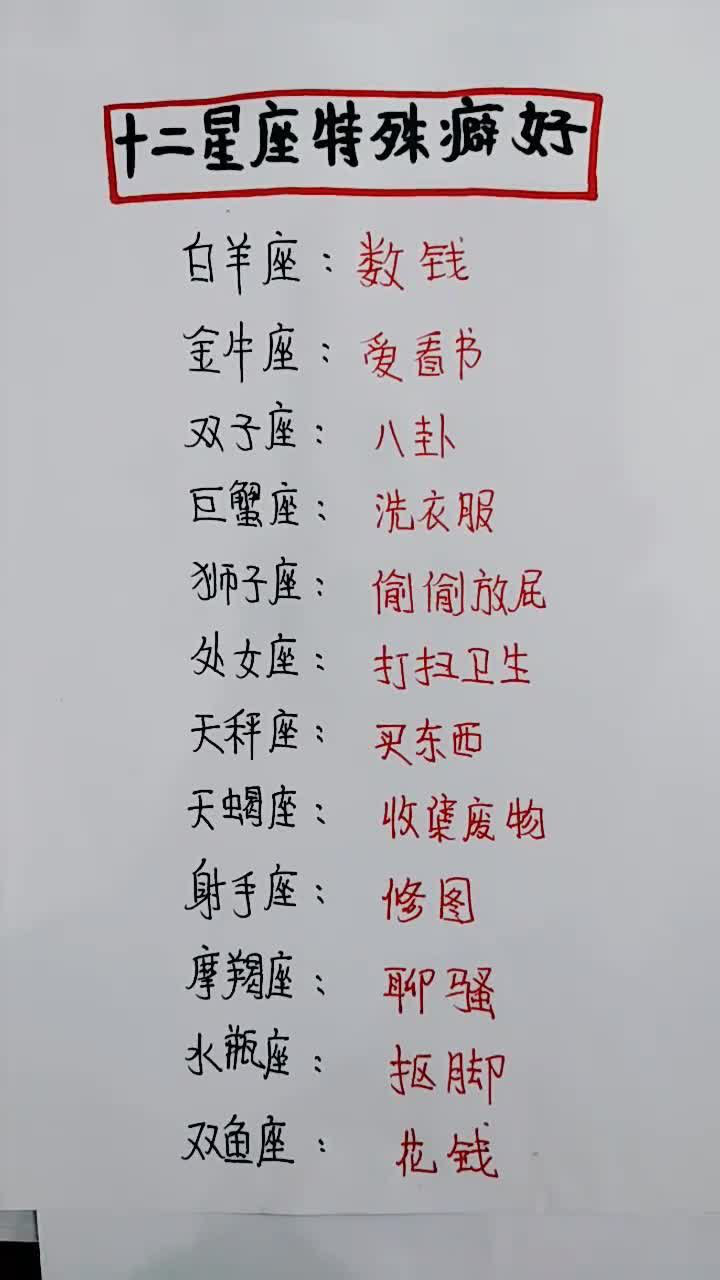 十二星座特殊癖好
白羊座：数钱
金牛座：爱看书
双子座：八卦
巨蟹座：洗衣服
狮子座：偷偷放屁
处女座：打扫卫生
天秤座：买东西
天蝎座：收集废物
射手座：修图
摩羯座：聊骚
水瓶座：抠脚
双鱼座：花钱